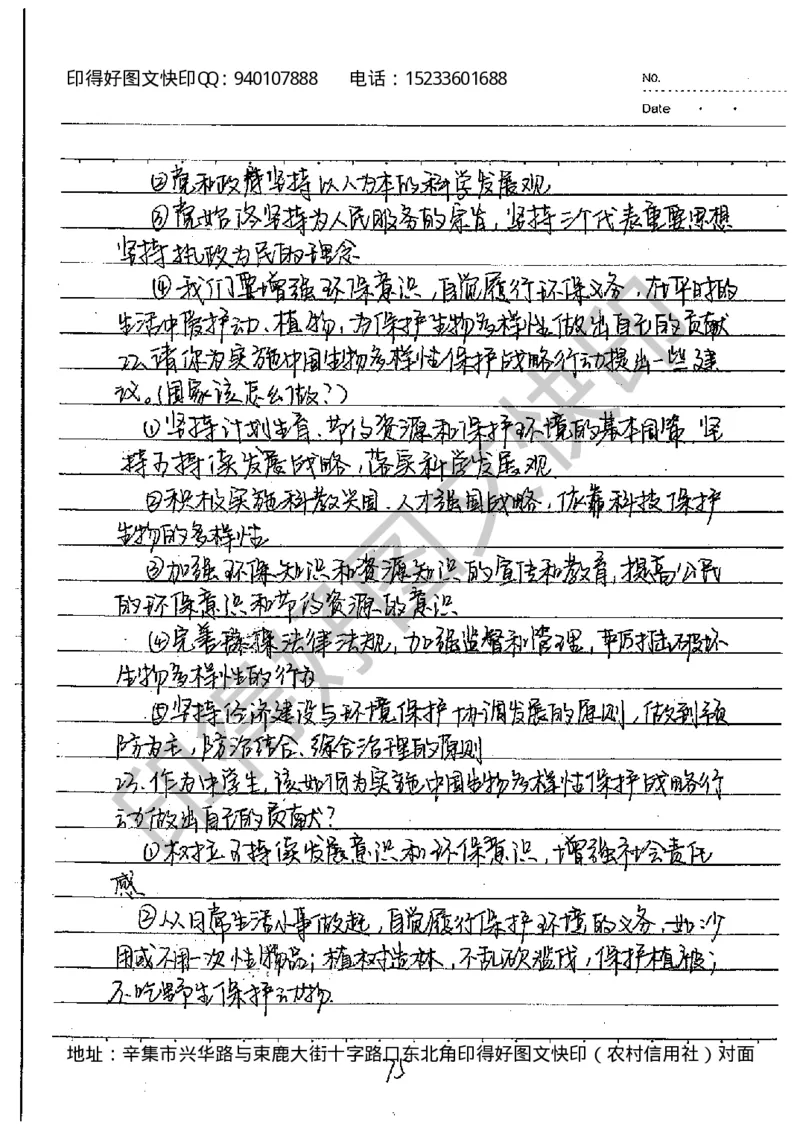 印得好图文快印QQ：940107888 电话：15233601688
No.
Date
②党和政府坚持以人为本的科学发展观
③党始终坚持为人民服务的宗旨，坚持三个代表重要思想
坚持执政为民的理念
④我们要增强环保意识，自觉履行环保义务，在平时的
生活中爱护动、植物，为保护生物多样性做出自己的贡献
22、请你为实施中国生物多样性保护战略行动提出一些建
议。（国家该怎么做？）
①坚持计划生育、节约资源和保护环境的基本国策，坚
持可持续发展战略，落实科学发展观
②积极实施科教兴国、人才强国战略，依靠科技保护
生物的多样性
③加强环保知识和资源知识的宣传和教育，提高公民
的环保意识和节约资源的意识
④完善法律法规，加强监督和管理，严厉打击破坏
生物多样性的行为
⑤坚持经济建设与环境保护协调发展的原则，做到预
防为主、防治结合、综合治理的原则
23、作为中学生，该如何为实施中国生物多样性保护战略行
动做出自己的贡献？
①树立可持续发展意识和环保意识，增强社会责任
感
②从日常生活小事做起，自觉履行保护环境的义务，如少
用或不用一次性物品；植树造林，不乱砍滥伐，保护植被；
不吃野生保护动物.
地址：辛集市兴华路与束鹿大街十字路口东北角印得好图文快印（农村信用社）对面
75
印得好图文快印